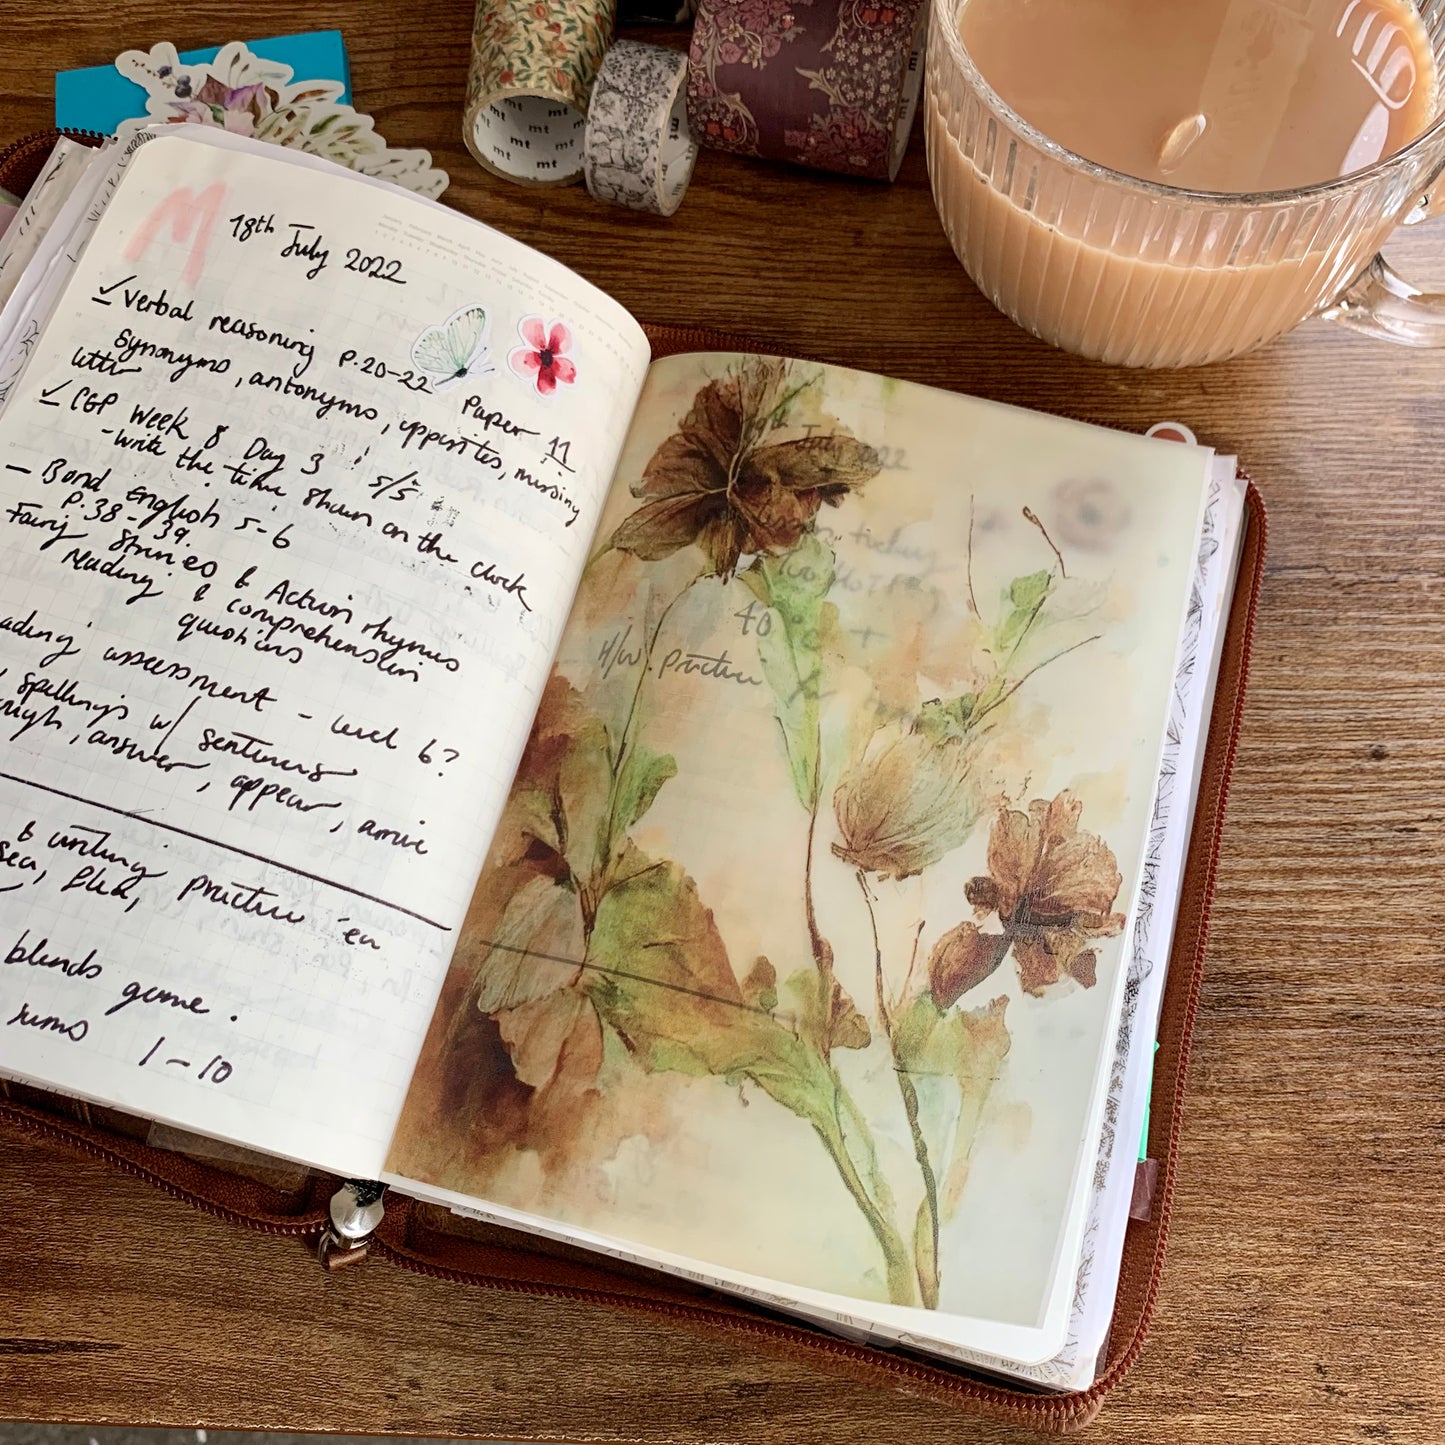 M
18th July 2022
✓ Verbal reasoning P.20-22 Paper 11
Synonyms, antonyms, opposites, missing
letter
✓ CGP Week 8 Day 3 5/5
- write the time shown on the clock
- Bond English 5-6
P.38-39
Fairy Stories & Action rhymes
Reading & comprehension
questions
ading assessment - level 6?
spellings w/ sentences
answer, appear, arrive
& writing practice - ea
sea, plea,
blends game.
sums 1-10
19th July 2022
40°C +
H/W. practice
mt
mt
mt
mt
mt